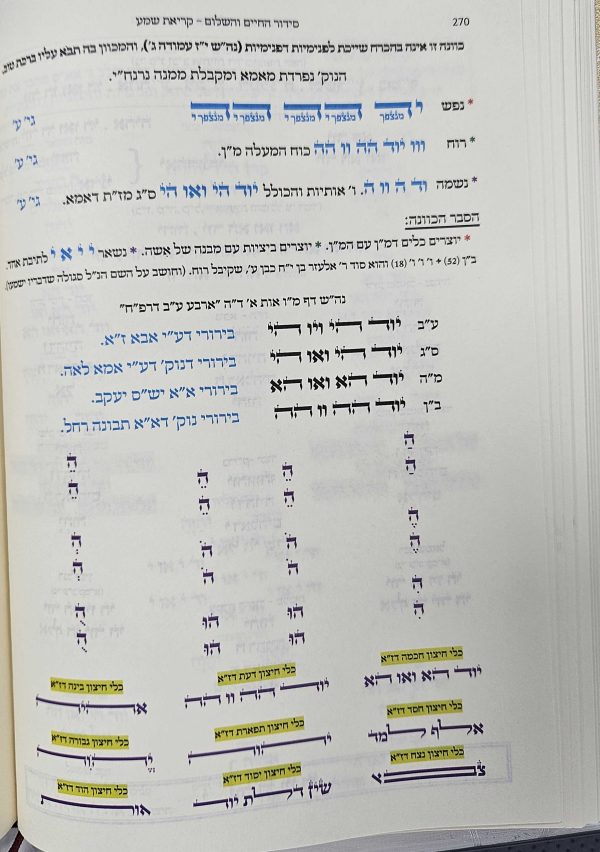 270 סידור החיים והשלום - קריאת שמע
כוונה זו אינה בהכרח שייכת לפנימיות דפנימיות (נה"ש י"ז עמודה ג'), והמכוון בה תבא עליו ברכת טוב.
הנוק' נפרדת מאמא ומקבלת ממנה נרנח"י.
* נפש י ה ה ה ה ה גי' ע'
מנצפך מנצפך מנצפך מנצפך מנצפך
* רוח ווו יוד הה וו הה כוח המעלה מ"ן. גי' ע'
* נשמה יד ה וו ה. ו' אותיות והכולל יוד הי ואו הי ס"ג מז"ת דאמא. גי' ע'
הסבר הכוונה:
* יוצרים כלים דמ"ן עם המ"ן. * יוצרים ביציות עם מבנה של אשה. * נשאר י י א י לתיבת אחד.
ב"ן (52) + ו' ו' ו' (18) והוא סוד ר' אלעזר בן י"ח כבן ע', שקיבל רוח. (וחושב על השם הנ"ל סגולה שדבריו ישמעו).
נה"ש דף מ"ו אות א' ד"ה "ארבע ע"ב דרפ"ח"
ע"ב יוד הי ויו הי בירורי דע"י אבא ז"א.
ס"ג יוד הי ואו הי בירורי דנוק' דע"י אמא לאה.
מ"ה יוד הא ואו הא בירורי א"א יש"ס יעקב.
ב"ן יוד הה וו הה בירורי נוק' דא"א תבונה רחל.
ה ה ה ה
ה ה ה ה
ה ה ה ה
ה ה ה ה
ה הו הו ה
ה הו הו ה
כלי חיצון חכמה דז"א כלי חיצון דעת דז"א כלי חיצון בינה דז"א
יוד הא ואו הא יוד הה וו הה אהיה
כלי חיצון חסד דז"א כלי חיצון תפארת דז"א כלי חיצון גבורה דז"א
אלף למד יהוה יהוה
כלי חיצון נצח דז"א כלי חיצון יסוד דז"א כלי חיצון הוד דז"א
שין דלת יוד אור